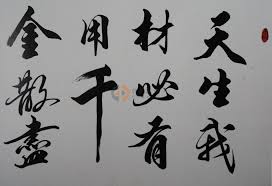 天生我
材必有
用千
金散盡